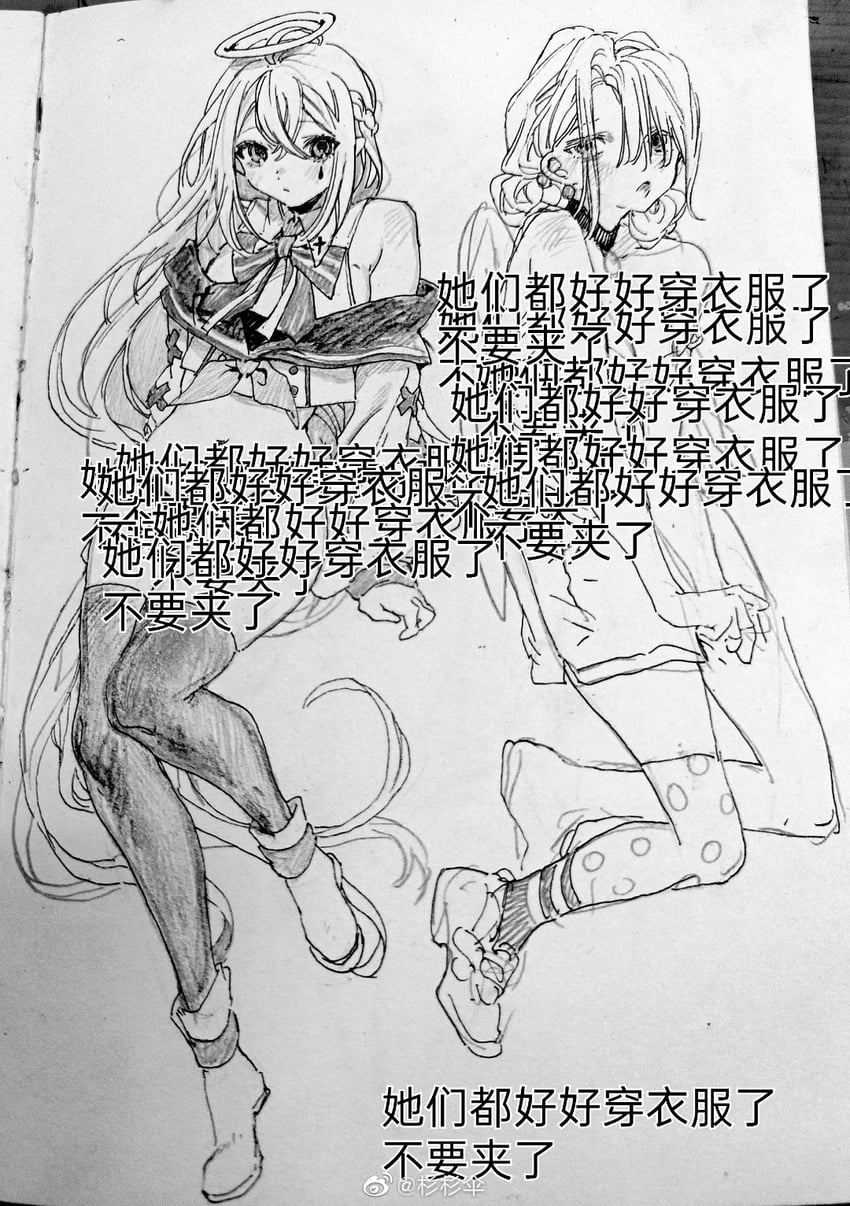 她们都好好穿衣服了
她们都好好穿衣服了
不要夹了
不她们都好好穿衣服了
她们都好好穿衣服了
不要夹了
她们都好好穿衣服
她们都好好穿衣服了
她们都好好穿衣服
她们都好好穿衣服了
她们都好好穿衣
不要夹了
她们都好好穿衣服了
不要夹了
不要夹了
她们都好好穿衣服了
不要夹了
@杉杉伞